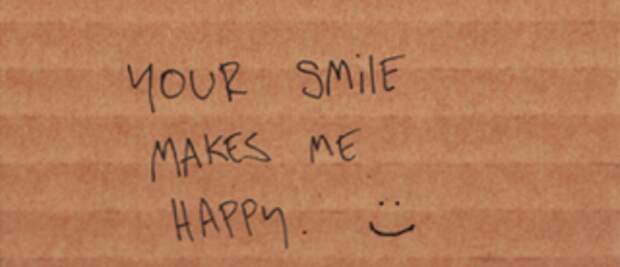 YOUR SMiLE
MAKES ME
HAPPY. :)